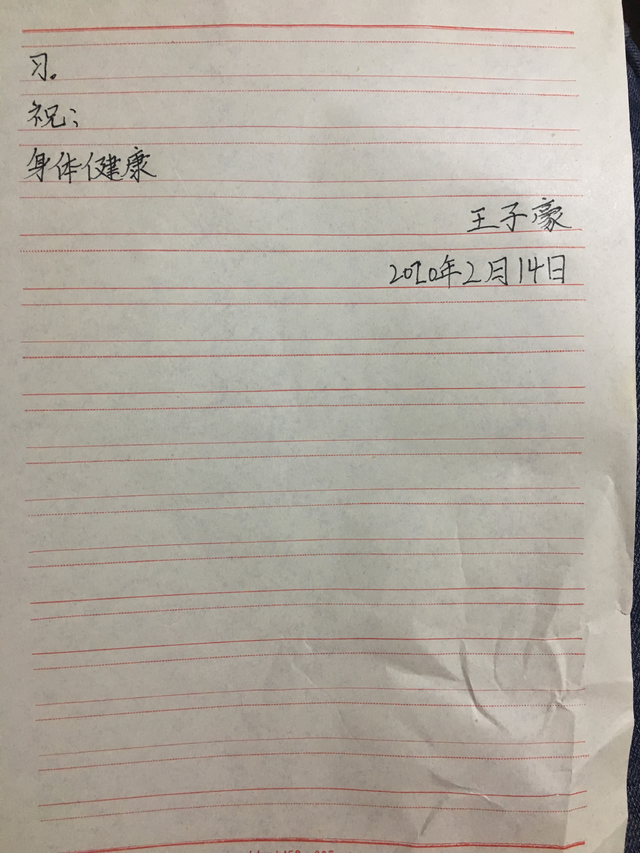 习。
祝:
身体健康
王子豪
2020年2月14日